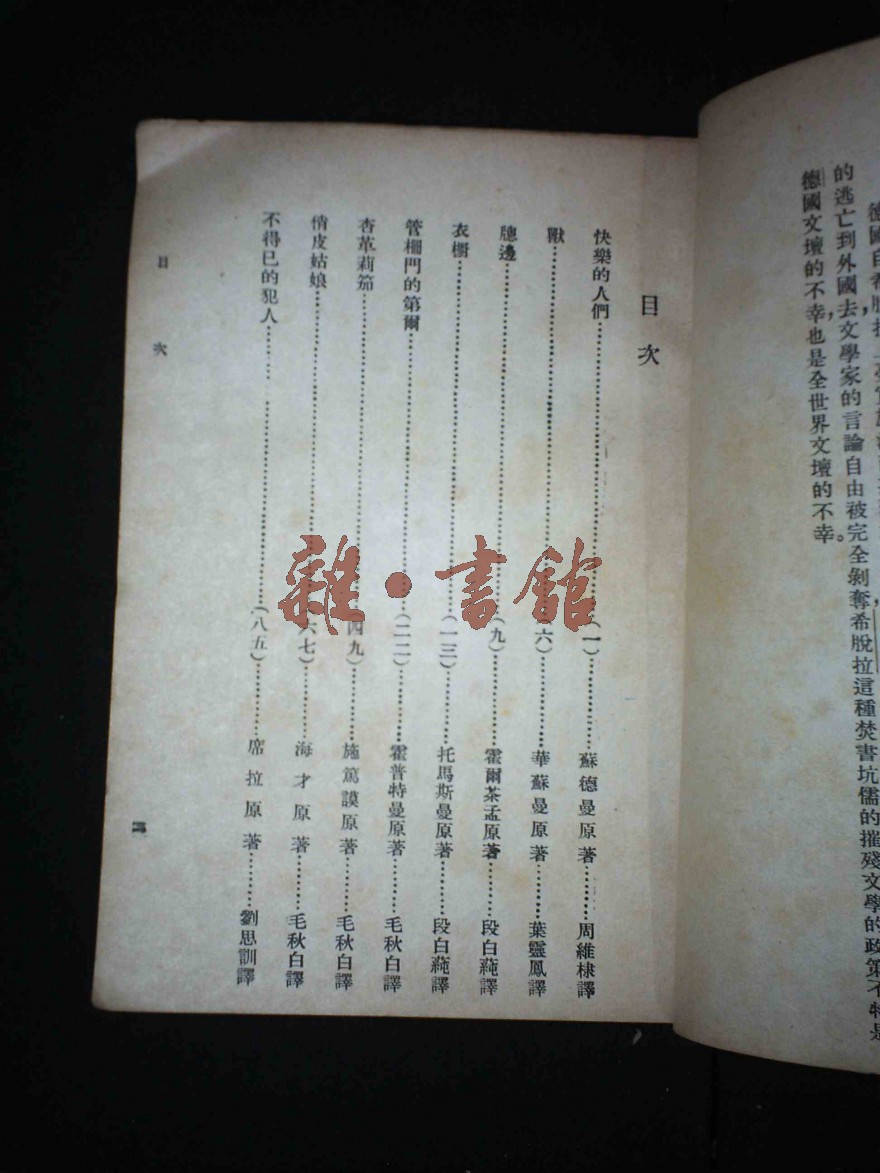 的逃亡到外國去,文學家的言論自由被完全剝奪,希脫拉這種焚書坑儒的摧殘文學的政策不特是
德國文壇的不幸,也是全世界文壇的不幸。
目次
快樂的人們(一)蘇德曼原著周維棣譯
獸(六)華蘇曼原著葉靈鳳譯
牕邊(九)霍爾茶孟原著段白蒓譯
衣櫥(一三)托馬斯曼原著段白蒓譯
管柵門的第爾(二二)霍普特曼原著毛秋白譯
杏革莉笳(四九)施篤謨原著毛秋白譯
俏皮姑娘(六七)海才原著毛秋白譯
不得已的犯人(八五)席拉原著劉思訓譯
目次
雜·書館